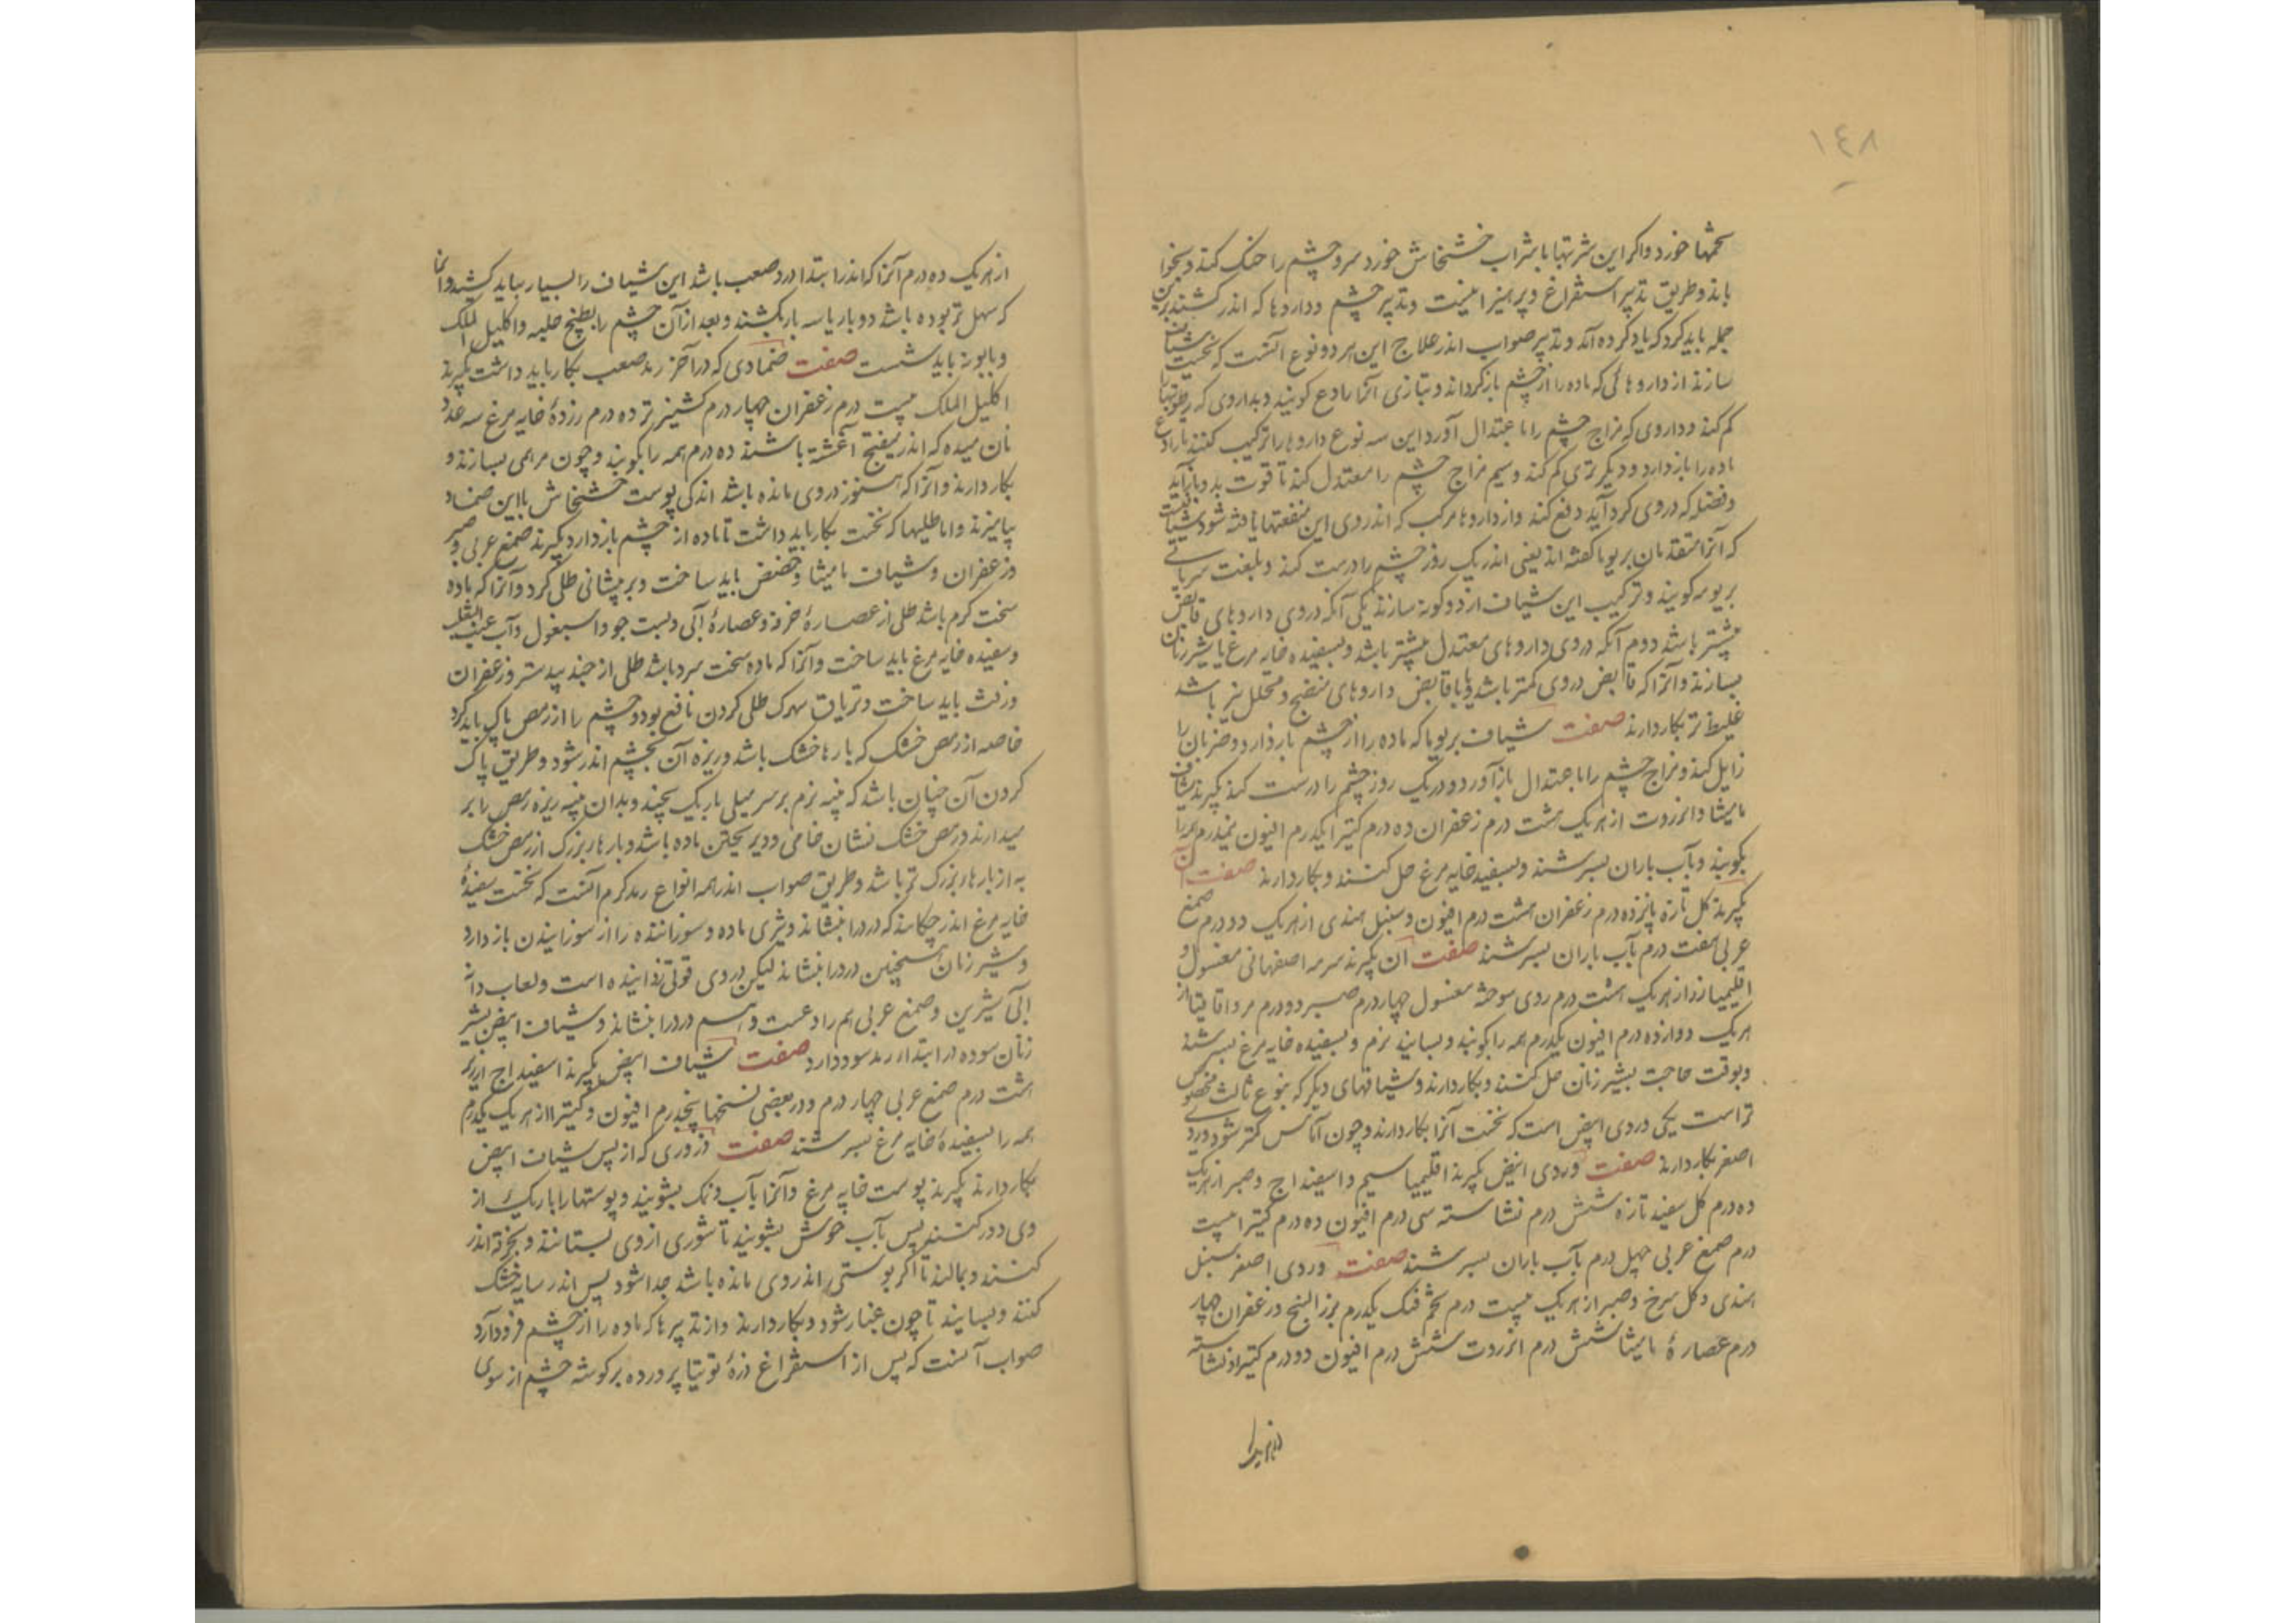 ١٤٨
تخمها خورد واکر این شربتها با شراب خشخاش خورد سر و چشم را خنک کند و بخوا
باند و طریق تدبیر استفراغ و پرهیز اینست و تدبیر چشم و داروها که اندر کشند برین
جمله باید کرد که یاد کرده آند و تدبیر صواب اندر علاج این هر دو نوع آنست که نخست شیاف
سازند از داروهائی که ماده را از چشم بازکرداند و بتازی آنرا رادع کویند و بداروی که رطوبتها را
کم کند و داروی که مزاج چشم را با عتدال آورد این سه نوع داروها را ترکیب کنند تا رادع
ماده را باز دارد و دیکر تری کم کند و سیم مزاج چشم را معتدل کند تا قوت بدو بازآید
و فضله که در وی کرد آید دفع کند و از داروها مرکب که اندر وی این منفعتها یافته شود شیافیست
که آنرا متقدمان بریویا کفته اند یعنی اندر یک روز چشم را درست کند و بلغت سریانی
بریومه کویند و ترکیب این شیاف از دو کونه سازند یکی آنکه در وی داروهای قابض
بیشتر باشد دوم آنکه در وی داروهای معتدل بیشتر باشد و بسفیده خایه مرغ یا شیر زنان
بسازند و آنرا که قابض در وی کمتر باشد و با قابض داروهای منضج و محلل نیز باشد
غلیظ تر بکار دارند صفت شیاف بریویا که ماده را از چشم باز دارد و ضربان را
زایل کند و مزاج چشم را با عتدال باز آورد و در یک روز چشم را درست کند بکیرند شیاف
مامیثا و انزروت از هر یک هشت درم زعفران ده درم کتیرا یکدرم افیون نیمدرم همه را
بکوبند و بآب باران بسرشند و بسفید خایه مرغ حل کنند و بکار دارند صفت آن
بکیرند کل تازه پانزده درم زعفران هشت درم افیون و سنبل هندی از هر یک دو درم صمغ
عربی هفت درم بآب باران بسرشند صفت آن بکیرند سرمه اصفهانی مغسول و
اقلیمیا زر از هر یک هشت درم روی سوخته مغسول چهار درم صبر دو درم مر و اقاقیا از
هر یک دوازده درم افیون یکدرم همه را بکوبند و بسایند نرم و بسفیده خایه مرغ بسرشند
و بوقت حاجت بشیر زنان حل کنند و بکار دارند و شیافهای دیکر که بنوع ثالث مخصوص
تر است یکی وردی ابیض است که نخست آنرا بکار دارند و چون آماس کمتر شود وردی
اصفر بکار دارند صفت وردی ابیض بکیرند اقلیمیا سیم و اسفیداج و صبر از هر یک
ده درم کل سفید تازه شش درم نشاسته سی درم افیون ده درم کتیرا بیست
درم صمغ عربی چهل درم بآب باران بسرشند صفت وردی اصفر سنبل
هندی و کل سرخ و صبر از هر یک بیست درم تخم فنک یکدرم بزر البنج و زعفران چهار
درم عصارهٔ مامیثا شش درم انزروت شش درم افیون دو درم کتیرا و نشاسته
از هر یک ده درم آنرا که اندر ابتدا درد صعب باشد این شیاف را بسیار بباید کشید و آنرا
که سهل تر بوده باشد دو بار یا سه بار بکشند و بعد از آن چشم را بطبیخ حلبه و اکلیل الملک
و بابونه باید شست صفت ضمادی که در آخر رمد صعب بکار باید داشت بکیرند
اکلیل الملک بیست درم زعفران چهار درم کشنیز تر ده درم زردهٔ خایه مرغ سه عدد
نان میده که اندر میفختج آغشته باشند ده درم همه را بکوبند و چون مرهمی بسازند و
بکار دارند و آنرا که هنوز در وی مانده باشد اندکی پوست خشخاش با این ضماد
بیامیزند و اما طلیها که نخست بکار باید داشت تا ماده از چشم باز دارد بکیرند صمغ عربی و صبر
و زعفران و شیاف مامیثا و حضض باید ساخت و بر پیشانی طلی کرد و آنرا که ماده
سخت کرم باشد طلی از عصارهٔ خرفه و عصارهٔ آبی و بست جو و اسبغول و آب عنب الثعلب
و سفیده خایه مرغ باید ساخت و آنرا که ماده سخت سرد باشد طلی از جند بیدستر و زعفران
و زفت باید ساخت و تریاق بسرک طلی کردن نافع بود و چشم را از رمص پاک باید کرد
خاصه از رمص خشک که بارها خشک باشد و ریزه آن بچشم اندر شود و طریق پاک
کردن آن چنان باشد که پنبه نرم بر سر میلی باریک پیچند و بدان پنبه ریزه رمص را بر
میدارند و رمص خشک نشان خامی و دیر پختن ماده باشد و بارهاء بزرک از رمص خشک
به از بارهاء بزرک تر باشد و طریق صواب اندر همه انواع رمد کرم آنست که نخست سفیدهٔ
خایه مرغ اندر چکانند که درد را بنشاند و تیزی ماده و سوزاننده را از سوزانیدن باز دارد
و شیر زنان همچنین درد را بنشاند لیکن در وی قوتی زداینده است و لعاب دانه
آبی شیرین و صمغ عربی هم رادعست و هم درد را بنشاند و شیاف ابیض بشیر
زنان سوده در ابتداء رمد سود دارد صفت شیاف ابیض بکیرند اسفیداج ارزیز
هشت درم صمغ عربی چهار درم و در بعضی نسختها پنجدرم افیون و کتیرا از هر یک یکدرم
همه را بسفیدهٔ خایه مرغ بسرشند صفت ذروری که از پس شیاف ابیض
بکار دارند بکیرند پوست خایه مرغ و آنرا بآب و نمک بشویند و پوستها را باریک از
وی دور کنند پس بآب خوش بشویند تا شوری از وی بستانند و بخرقه اندر
کنند و بمالند تا اکر پوستی اندر وی مانده باشد جدا شود پس اندر سایه خشک
کنند و بسایند تا چون غبار شود و بکار دارند و از تدبیرها که ماده را از چشم فرود آرد
صواب آنست که پس از استفراغ ذرهٔ توتیا پرورده بر کوشه چشم از سوی